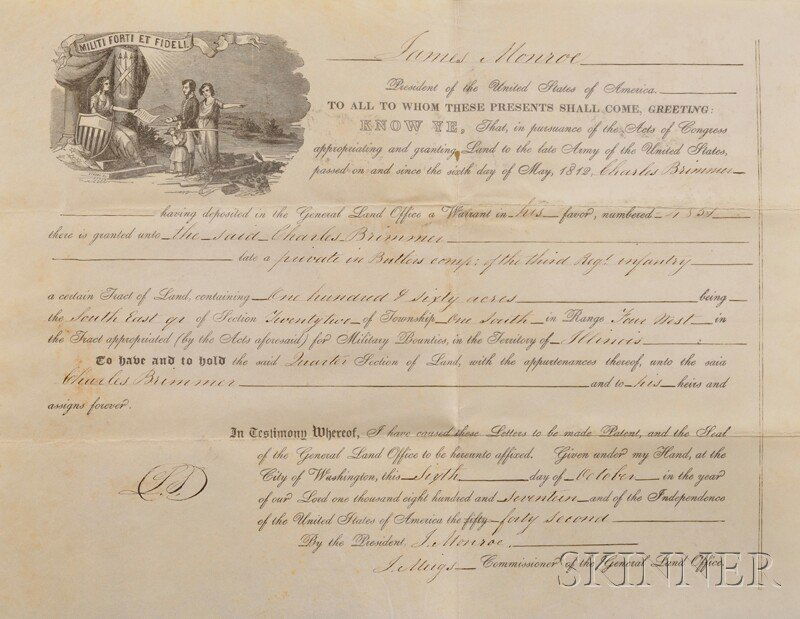 MILITI FORTI ET FIDELI.
James Monroe
President of the United States of America.
TO ALL TO WHOM THESE PRESENTS SHALL COME, GREETING:
KNOW YE, That, in pursuance of the Acts of Congress
appropriating and granting Land to the late Army of the United States,
passed on and since the sixth day of May, 1812, Charles Brimmer
having deposited in the General Land Office a Warrant in his favor, numbered
there is granted unto the said Charles Brimmer
late a private in Butlers comp: of the third Regt. infantry
a certain Tract of Land, containing One hundred & sixty acres being
the South East qr of Section Twenty two of Township One South in Range Four West in
the Tract appropriated (by the Acts aforesaid) for Military Bounties, in the Territory of Illinois :
To have and to hold the said Quarter Section of Land, with the appurtenances thereof, unto the said
Charles Brimmer and to his heirs and
assigns forever.
In Testimony Whereof, I have caused these Letters to be made Patent, and the Seal
of the General Land Office to be hereunto affixed. Given under my Hand, at the
City of Washington, this Sixth day of October in the year
of our Lord one thousand eight hundred and Seventeen and of the Independence
of the United States of America the fifty forty second
By the President, J. Monroe.
J. Meigs Commissioner of the General Land Office.
L.S
SKINNER